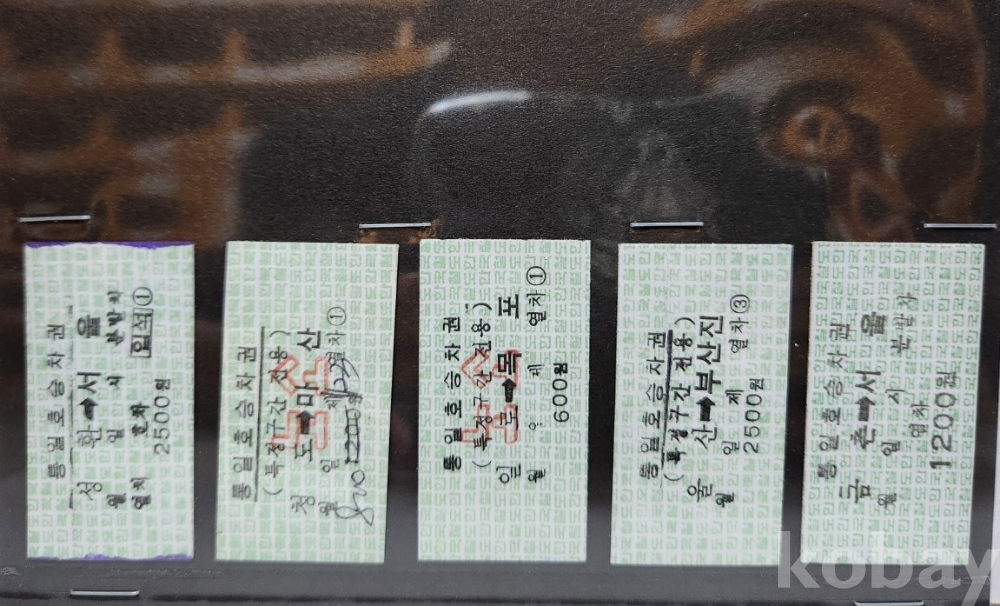 통일호승차권
성 환➡서 울
월 일 시 분발차
열차 호차 입석 ①
2500원
통일호승차권
(특정구간 전용)
노소
청 도➡마 산
월 일 제 열차 ①
통일호승차권
(특정구간 전용)
노소
일 로➡목 포
월 일 제 열차 ①
600원
통일호승차권
(특정구간 전용)
울 산➡부산진
월 일 제 열차 ③
2500원
통일호승차권
금 촌➡서 울
월 일 시 분발차
열차
1200원
kobay